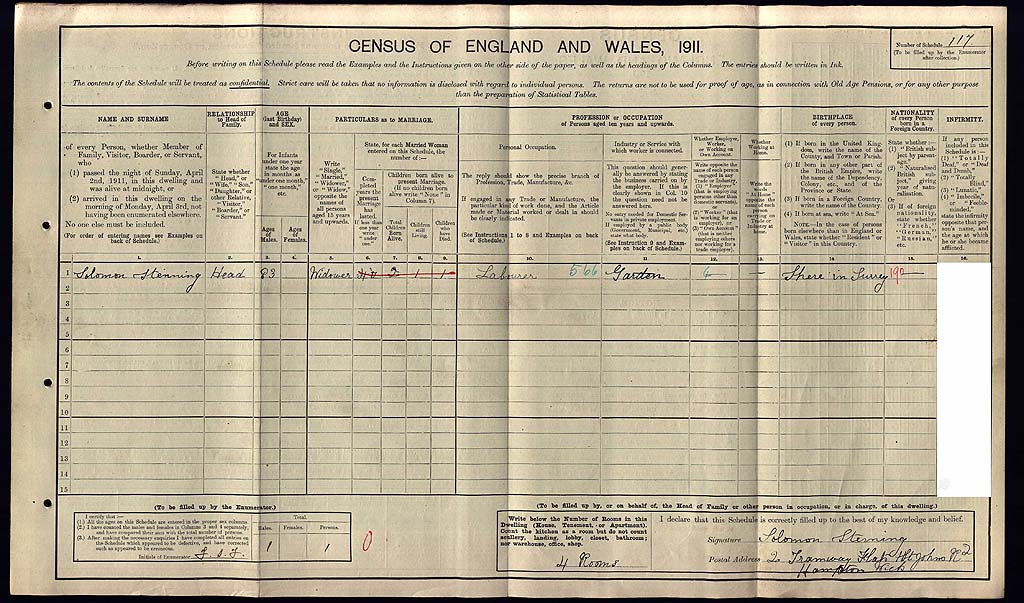 CENSUS OF ENGLAND AND WALES, 1911.
Number of Schedule 117
(To be filled up by the Enumerator after collection.)
Before writing on this Schedule please read the Examples and the Instructions given on the other side of the paper, as well as the headings of the Columns. The entries should be written in Ink.
The contents of the Schedule will be treated as confidential. Strict care will be taken that no information is disclosed with regard to individual persons. The returns are not to be used for proof of age, as in connection with Old Age Pensions, or for any other purpose
than the preparation of Statistical Tables.
NAME AND SURNAME
of every Person, whether Member of Family, Visitor, Boarder, or Servant, who
(1) passed the night of Sunday, April 2nd, 1911, in this dwelling and was alive at midnight, or
(2) arrived in this dwelling on the morning of Monday, April 3rd, not having been enumerated elsewhere.
No one else must be included.
(For order of entering names see Examples on back of Schedule.)
RELATIONSHIP to Head of Family.
State whether "Head," or "Wife," "Son," "Daughter," or other Relative, "Visitor," "Boarder," or "Servant."
AGE (last Birthday) and SEX.
For Infants under one year state the age in months as "under one month," "one month," etc.
Ages of Males.
Ages of Females.
PARTICULARS as to MARRIAGE.
Write "Single," "Married," "Widower," or "Widow," opposite the names of all persons aged 15 years and upwards.
State, for each Married Woman entered on this Schedule, the number of:—
Completed years the present Marriage has lasted. If less than one year write "under one."
Children born alive to present Marriage. (If no children born alive write "None" in Column 7).
Total Children Born Alive.
Children still Living.
Children who have Died.
PROFESSION or OCCUPATION of Persons aged ten years and upwards.
Personal Occupation.
The reply should show the precise branch of Profession, Trade, Manufacture, &c.
If engaged in any Trade or Manufacture, the particular kind of work done, and the Article made or Material worked or dealt in should be clearly indicated.
(See Instructions 1 to 8 and Examples on back of Schedule.)
Industry or Service with which worker is connected.
This question should generally be answered by stating the business carried on by the employer. If this is clearly shown in Col. 10 the question need not be answered here.
No entry needed for Domestic Servants in private employment. If employed by a public body (Government, Municipal, etc.) state what body.
(See Instruction 9 and Examples on back of Schedule.)
Whether Employer, Worker, or Working on Own Account.
Write opposite the name of each person engaged in any Trade or Industry, (1) "Employer" (that is employing persons other than domestic servants), or (2) "Worker" (that is working for an employer), or (3) "Own Account" (that is neither employing others nor working for a trade employer).
Whether Working at Home.
Write the words "At Home" opposite the name of each person carrying on Trade or Industry at home.
BIRTHPLACE of every person.
(1) If born in the United Kingdom, write the name of the County, and Town or Parish.
(2) If born in any other part of the British Empire, write the name of the Dependency, Colony, etc., and of the Province or State.
(3) If born in a Foreign Country, write the name of the Country.
(4) If born at sea, write "At Sea."
NOTE.—In the case of persons born elsewhere than in England or Wales, state whether "Resident" or "Visitor" in this Country.
NATIONALITY of every Person born in a Foreign Country.
State whether:— (1) "British subject by parentage." (2) "Naturalised British subject," giving year of naturalisation. Or (3) If of foreign nationality, state whether "French," "German," "Russian," etc.
INFIRMITY.
If any person included in this Schedule is:— (1) "Totally Deaf," or "Deaf and Dumb," (2) "Totally Blind," (3) "Lunatic," (4) "Imbecile," or "Feeble-minded," state the infirmity opposite that person's name, and the age at which he or she became afflicted.
1. 2. 3. 4. 5. 6. 7. 8. 9. 10. 11. 12. 13. 14. 15. 16.
1 Solomon Stenning Head 83 — Widower 2 1 1 Labourer 566 Garden 6 — Shere in Surrey 190
2
3
4
5
6
7
8
9
10
11
12
13
14
15
(To be filled up by the Enumerator.)
I certify that:—
(1.) All the ages on this Schedule are entered in the proper sex columns.
(2.) I have counted the males and females in Columns 3 and 4 separately, and have compared their sum with the total number of persons.
(3.) After making the necessary enquiries I have completed all entries on the Schedule which appeared to be defective, and have corrected such as appeared to be erroneous.
Initials of Enumerator
Total.
Males. Females. Persons.
1 1 0
(To be filled up by, or on behalf of, the Head of Family or other person in occupation, or in charge, of this dwelling.)
Write below the Number of Rooms in this Dwelling (House, Tenement, or Apartment). Count the kitchen as a room but do not count scullery, landing, lobby, closet, bathroom; nor warehouse, office, shop.
4 Rooms
I declare that this Schedule is correctly filled up to the best of my knowledge and belief.
Signature Solomon Stenning
Postal Address 2 Tramway Flats St Johns Rd
Hampton Wick